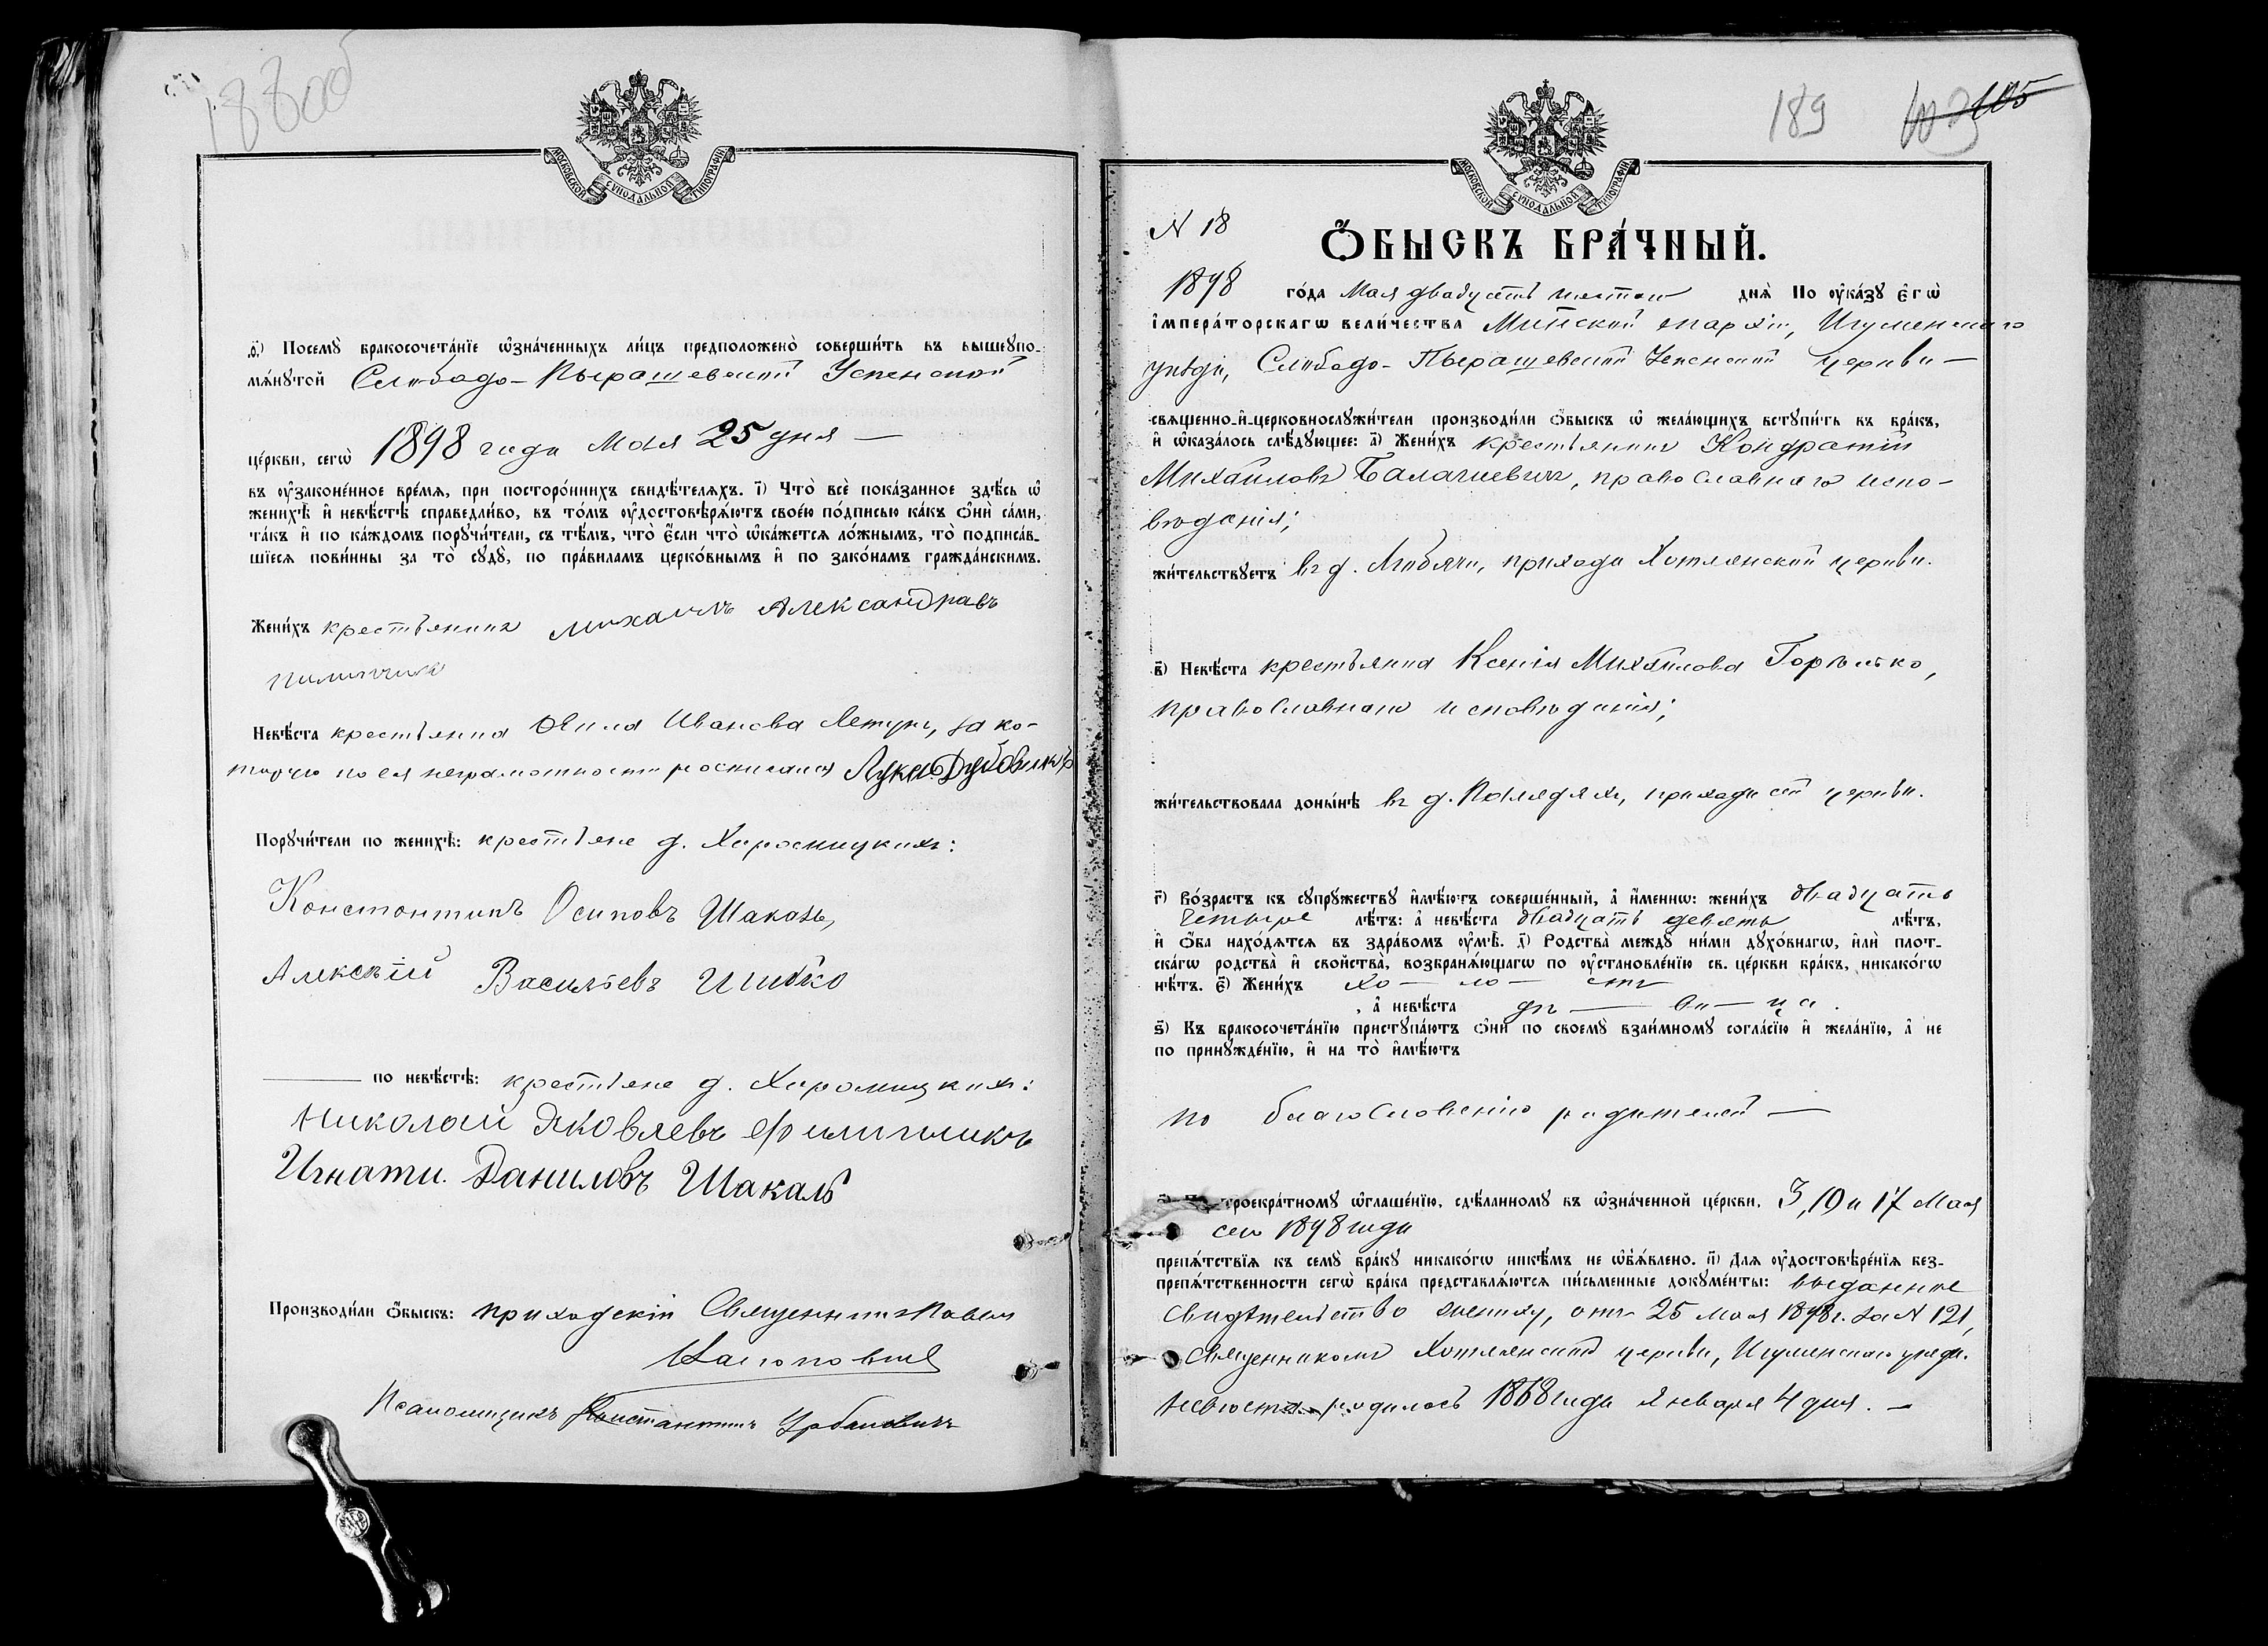 188об
МОСКОВСКОЙ СѴНОДАЛЬНОЙ ТИПОГРАФІИ
д҃і) Посемꙋ̀ бракосочета́нїе ѡ҆зна́ченныхъ ли́цъ предположено̀ соверши́ть въ вышеꙋпо-
мѧ́нꙋтой Слободо-Пырашевской Успенской
це́ркви, сегѡ̀ 1898 года Мая 25 дня —
въ ᲂу҆зако́ненное вре́мѧ, при посторо́ннихъ свидѣ́телѧхъ. і҃) Что̀ всѐ пока́занное здѣ́сь ѡ҆
женихѣ̀ и҆ невѣ́стѣ справедли́во, въ то́мъ ᲂу҆достовѣрѧ́ютъ свое́ю по́дписью ка́къ ѻ҆нѝ са́ми,
та́къ и҆ по ка́ждомъ порꙋчи́тели, съ тѣ́мъ, что̀ є҆́сли что̀ ѡ҆ка́жетсѧ ло́жнымъ, то̀ подписа́в-
шїесѧ пови́нны за то̀ сꙋдꙋ̀, по пра́виламъ церко́внымъ и҆ по зако́намъ гражда́нскимъ.
Жени́хъ крестьянинъ Михаилъ Александравъ
Невѣ́ста крестьянка Ивановa Летунъ, за ко-
торую по ея неграмотности росписался Лука Дубовикъ
Порꙋчи́тели по женихѣ̀: крестьяне д. Хоромицкихъ:
Константинъ Осиповъ Шакаль,
Алексѣй Васильевъ Шишко
по невѣ́стѣ: крестьяне д. Хоромицкихъ:
Николай Яковлевъ Филипчикъ
Игнати. Даниловъ Шакаль
Производи́ли ѻ҆́быскъ: приходскій Священникъ Павелъ
Псаломщикъ Константинъ Урбановичъ
189 105
МОСКОВСКОЙ СѴНОДАЛЬНОЙ ТИПОГРАФІИ
N 18
Ѻ҆́БЫСКЪ БРА́ЧНЫЙ.
1898 го́да Мая двадцать пятаго днѧ̀ По ᲂу҆ка́зꙋ є҆гѡ̀
і҆мпера́торскагѡ вели́чества Минской епархіи, Игуменскаго
уѣзда, Слободо-Пырашевской Успенской церкви —
свѧщенно-и҆-церковнослꙋжи́тели производи́ли ѻ҆́быскъ ѡ҆ жела́ющихъ встꙋпи́ть въ бра́къ,
и҆ ѡ҆каза́лось слѣ́дꙋющее: а҃) Жени́хъ крестьянинъ Кондратій
Михайловъ Балачневичъ, православнаго испо-
вѣданія;
жи́тельствꙋетъ въ д. Любячи, прихода Хотлянской церкви.
в҃) Невѣ́ста крестьянка Ксенія Михайлова Горошко,
православнаго исповѣданія;
жи́тельствовала доны́нѣ въ д. Полядяхъ, прихода сей церкви.
г҃) Во́зрастъ къ сꙋпрꙋ́жествꙋ и҆мѣ́ютъ соверше́нный, а҆ и҆́меннѡ: жени́хъ двадцать
четыре лѣ́тъ: а҆ невѣ́ста двадцать девять лѣ́тъ,
и҆ ѻ҆́ба нахо́дѧтсѧ въ здра́вомъ ᲂу҆мѣ̀. д҃) Родства̀ междꙋ̀ ни́ми дꙋхо́внагѡ, и҆лѝ плот-
ска́гѡ родства̀ и҆ свойства̀, возбранѧ́ющагѡ по ᲂу҆становле́нїю св. це́ркви бра́къ, никако́гѡ
нѣ́тъ. є҃) Жени́хъ хо — ло — стъ
, а҆ невѣ́ста дѣ — ви — ца.
ѕ҃) Къ бракосочета́нїю пристꙋпа́ютъ ѻ҆нѝ по своемꙋ̀ взаи́мномꙋ согла́сїю и҆ жела́нїю, а҆ не
по принꙋжде́нїю, и҆ на то̀ и҆мѣ́ютъ
по благословенію родителей —
троекра́тномꙋ ѡ҆глаше́нїю, сдѣ́ланномꙋ въ ѡ҆зна́ченной це́ркви, 3, 10 и 17 Мая
сего 1898 года
препѧ́тствїѧ къ семꙋ̀ бра́кꙋ никако́гѡ никѣ́мъ не ѡ҆б̾ѧ́влено. и҃) Длѧ̀ ᲂу҆достовѣре́нїѧ без-
препѧ́тственности сегѡ̀ бра́ка представлѧ́ютсѧ пи́сьменные докꙋме́нты: выданное
свидѣтельство жениху, отъ 25 мая 1898 г. за N 121,
Священникомъ Хотлянской церкви, Игуменскаго уѣзда.
Невѣста родилась 1868 года января 4 дня. —